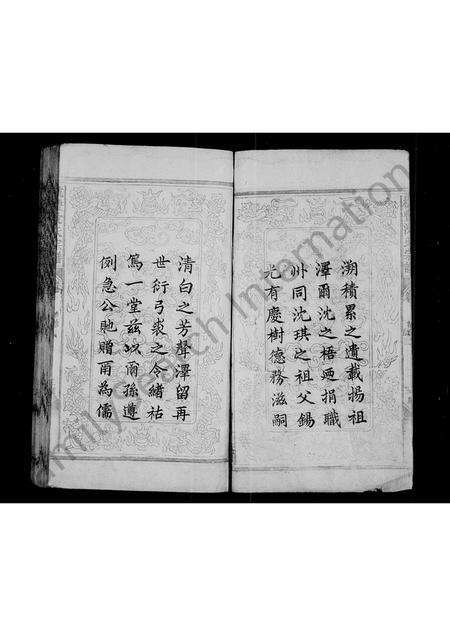 溯積累之遺載揚祖
澤爾沈之梧廼捐職
州同沈琪之祖父錫
光有慶樹德務滋嗣
清白之芳聲澤留再
世衍弓裘之令緒祜
篤一堂茲以爾孫遵
例急公貤贈爾為儒
milySearch Internation